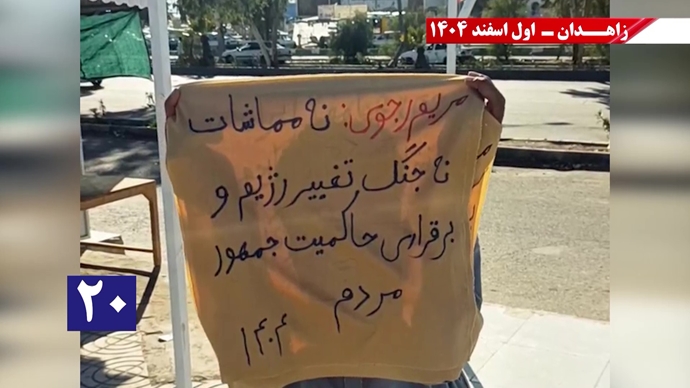 زاهـدان - اول اسفند ۱۴۰۴
مریم رجوی: نه مماشات
نه جنگ تغییر رژیم و
برقراری حاکمیت جمهور
مردم
۱۴۰۴
۲۰